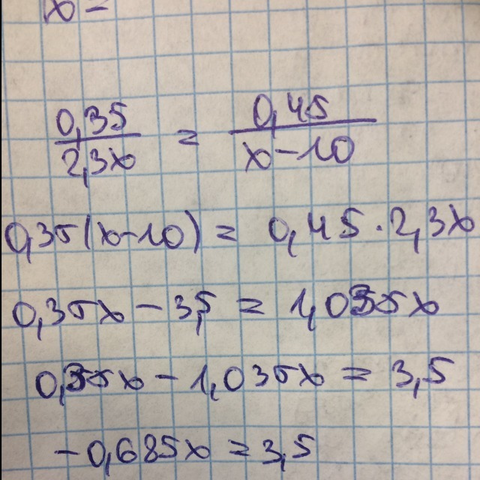 x =
0,35 / 2,3x = 0,45 / x - 10
0,35(x-10) = 0,45 · 2,3x
0,35x - 3,5 = 1,035x
0,35x - 1,035x = 3,5
-0,685x = 3,5